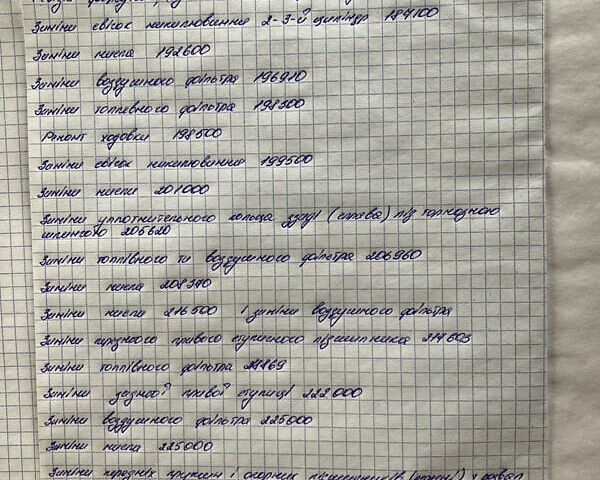 Заміни свічок накалювання 2-3-й циліндр 187100
Заміни масла 192600
Заміни воздушного фільтра 196910
Заміни топлевного фільтра 198300
Ремонт ходовки 198500
Заміни свічок накалювання 199500
Заміни масла 201000
Заміни уплотнительного кольца ззаді (справа) під тормозного
шлангого 205620
Заміни топлівного та воздушного фільтра 206960
Заміни масла 208390
Заміни масла 216500 і заміни воздушного фільтра
Заміни переднього правого ступичного підшипника 217605
Заміни топлівного фільтра
Заміни задньої правої ступиці 222000
Заміни воздушного фільтра 225000
Заміни масла 225000
Заміни передніх пружин і опорних підшипників